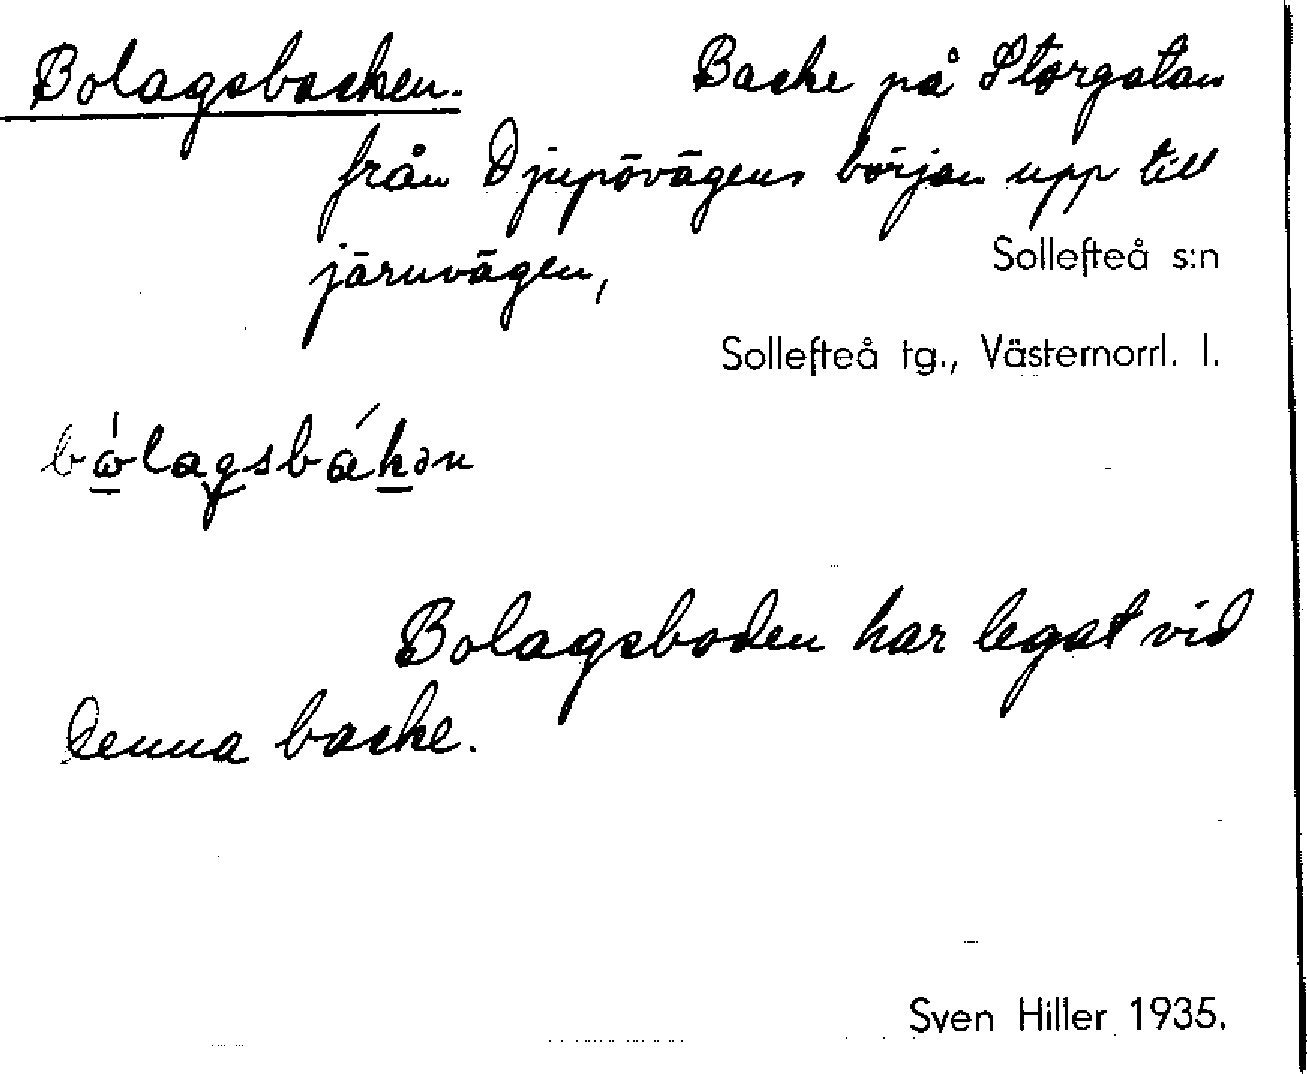 Bolagsbacken. Backe på Storgatan
från Djupövägens början upp till
järnvägen,
Sollefteå s:n
Sollefteå tg., Västernorrl. l.
bɷ́lagsbákən
Bolagsboden har legat vid
denna backe.
Sven Hiller 1935.